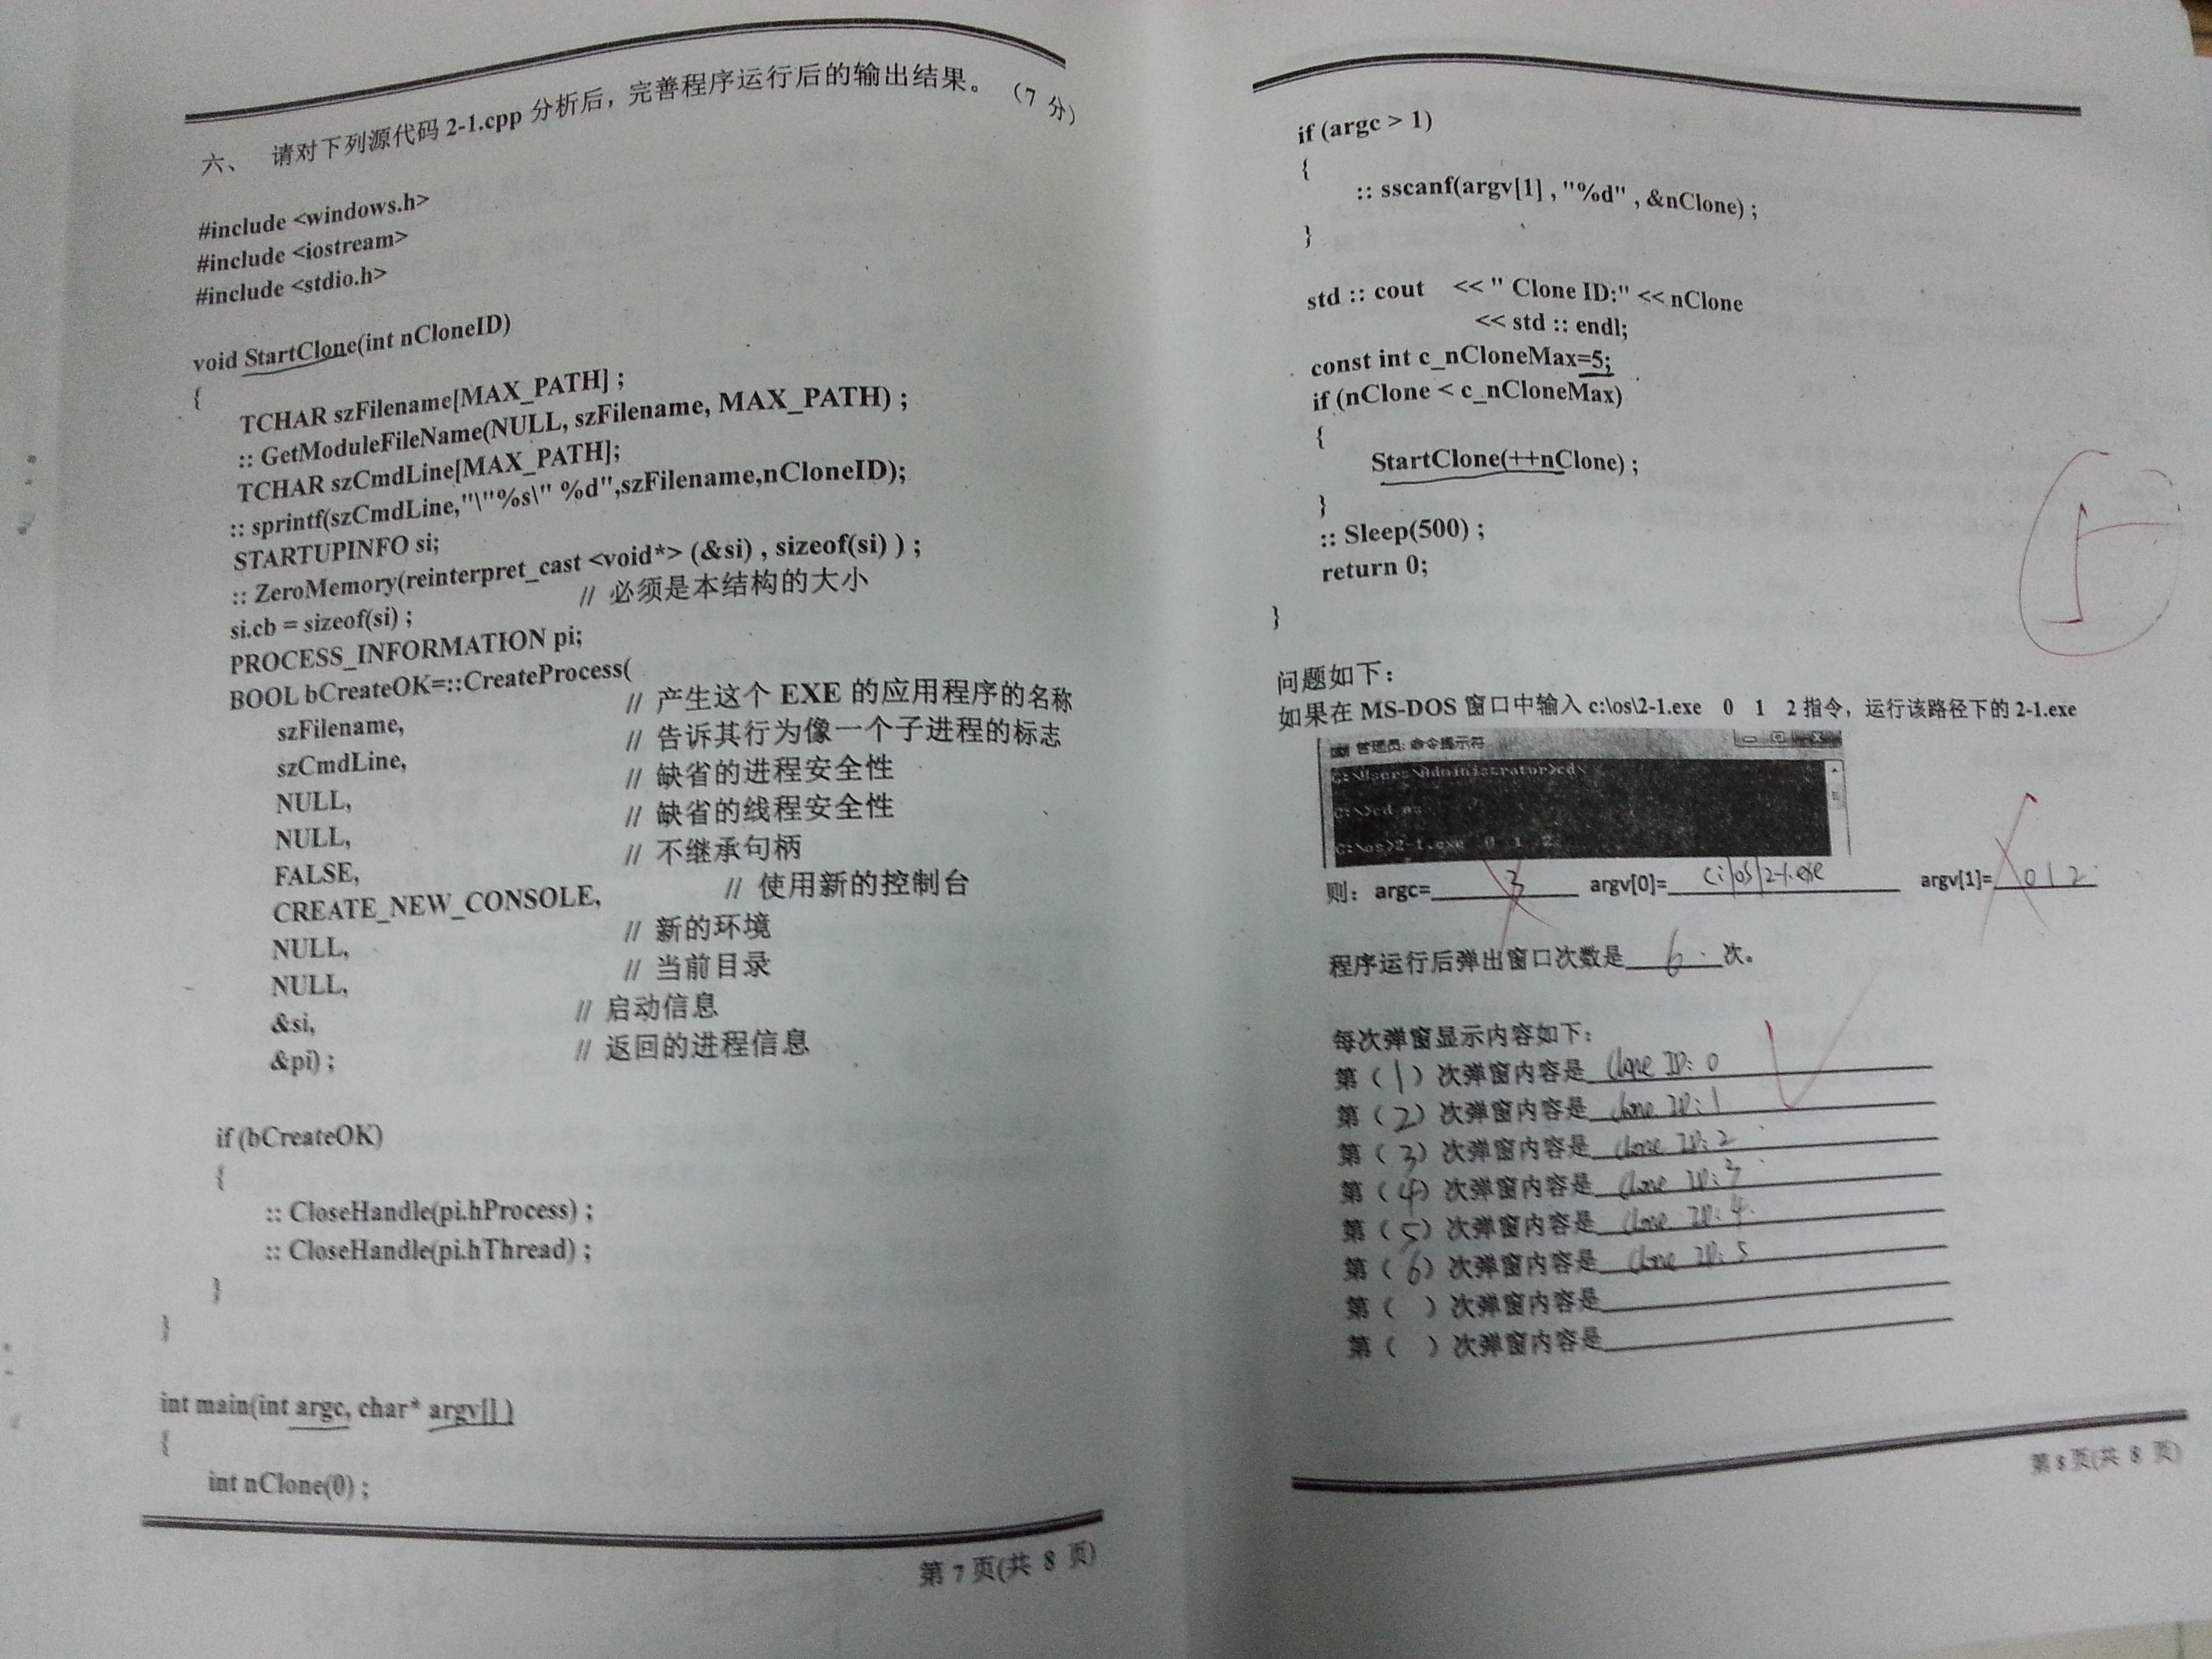 六、 请对下列源代码 2-1.cpp 分析后，完善程序运行后的输出结果。 （7 分）
#include <windows.h>
#include <iostream>
#include <stdio.h>
void StartClone(int nCloneID)
{
TCHAR szFilename[MAX_PATH] ;
:: GetModuleFileName(NULL, szFilename, MAX_PATH) ;
TCHAR szCmdLine[MAX_PATH];
:: sprintf(szCmdLine,"\"%s\" %d",szFilename,nCloneID);
STARTUPINFO si;
:: ZeroMemory(reinterpret_cast <void*> (&si) , sizeof(si) ) ;
si.cb = sizeof(si) ; // 必须是本结构的大小
PROCESS_INFORMATION pi;
BOOL bCreateOK=::CreateProcess(
szFilename, // 产生这个 EXE 的应用程序的名称
szCmdLine, // 告诉其行为像一个子进程的标志
NULL, // 缺省的进程安全性
NULL, // 缺省的线程安全性
FALSE, // 不继承句柄
CREATE_NEW_CONSOLE, // 使用新的控制台
NULL, // 新的环境
NULL, // 当前目录
&si, // 启动信息
&pi) ; // 返回的进程信息
if (bCreateOK)
{
:: CloseHandle(pi.hProcess) ;
:: CloseHandle(pi.hThread) ;
}
}
int main(int argc, char* argv[] )
{
int nClone(0) ;
第 7 页(共 8 页)
if (argc > 1)
{
:: sscanf(argv[1] , "%d" , &nClone) ;
}
std :: cout << " Clone ID:" << nClone
<< std :: endl;
const int c_nCloneMax=5;
if (nClone < c_nCloneMax)
{
StartClone(++nClone) ;
}
:: Sleep(500) ;
return 0;
}
问题如下：
如果在 MS-DOS 窗口中输入 c:\os\2-1.exe 0 1 2 指令，运行该路径下的 2-1.exe
管理员: 命令提示符
C:\Users\Administrator>cd\
C:\>cd os
C:\os>2-1.exe 0 1 2
则： argc= 3 argv[0]= c:\os\2-1.exe argv[1]= 0 1 2
程序运行后弹出窗口次数是 6 次。
每次弹窗显示内容如下：
第（1）次弹窗内容是 Clone ID: 0
第（2）次弹窗内容是 Clone ID: 1
第（3）次弹窗内容是 Clone ID: 2
第（4）次弹窗内容是 Clone ID: 3
第（5）次弹窗内容是 Clone ID: 4
第（6）次弹窗内容是 Clone ID: 5
第（ ）次弹窗内容是
第（ ）次弹窗内容是
第 8 页(共 8 页)